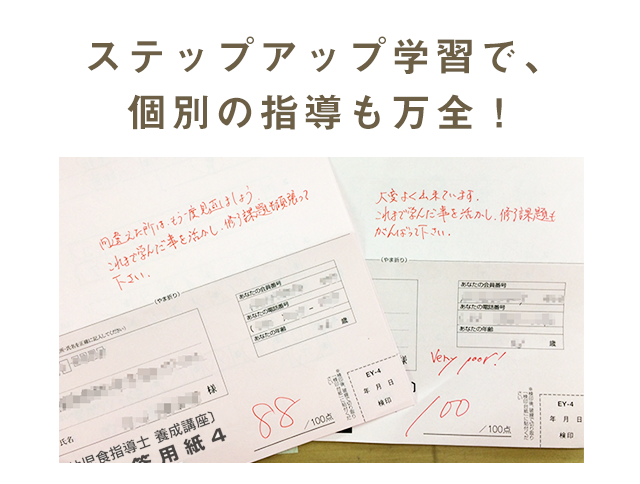 ステップアップ学習で、
個別の指導も万全！
間違えた所は、もう一度見直しましょう
これまで学んだ事を活かし、修了課題も頑張って
下さい。
(やま折り)
あなたの会員番号
あなたの電話番号
あなたの年齢
歳
様
氏名
児食指導士 養成講座〕
答用紙 4
88
/100点
EY-4
年 月 日
検印
大変よく出来ています。
これまで学んだ事を活かし、修了課題も
がんばって下さい。
(やま折り)
あなたの会員番号
あなたの電話番号
あなたの年齢
歳
Very poor!
100
/100点
EY-4
年 月 日
検印